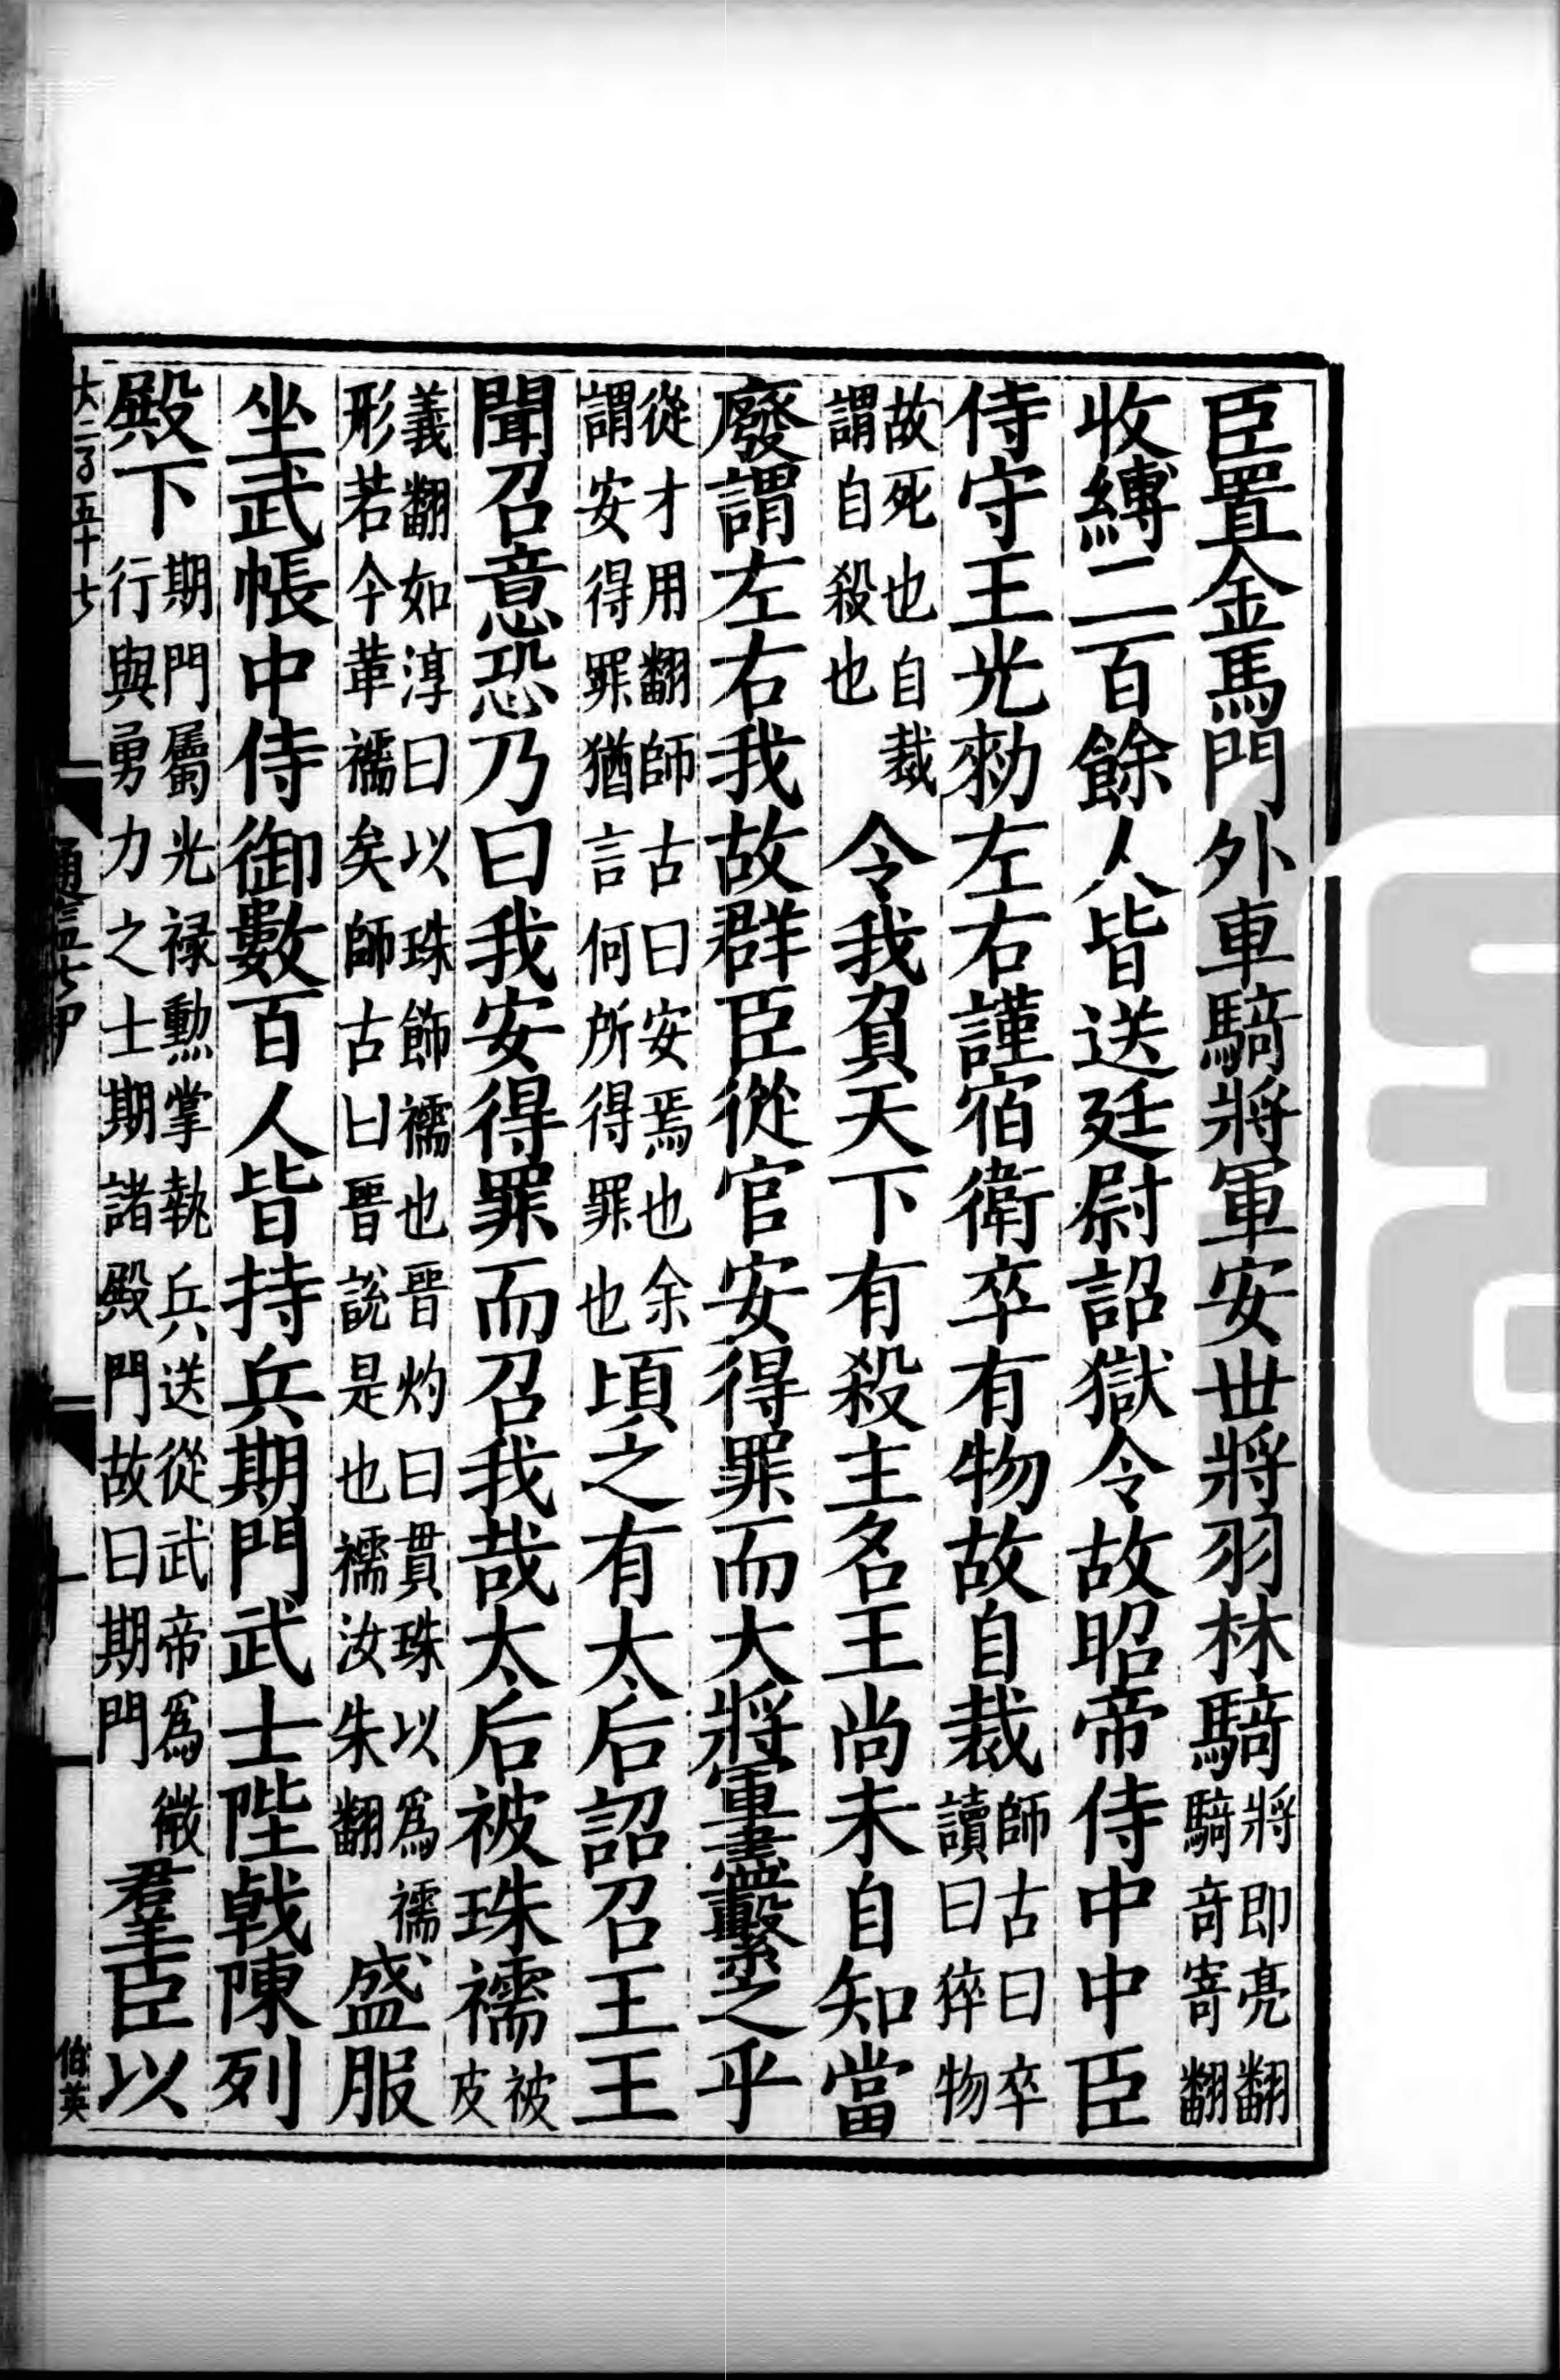 臣置金馬門外車騎將軍安丗將羽林騎將即亮翻騎奇寄翻
收縛二百餘人皆送廷尉詔獄令故昭帝侍中中臣
侍守王光勑左右謹宿衛卒有物故自裁師古曰卒讀曰猝物
故死也自裁謂自殺也令我負天下有殺主名王尚未自知當
廢謂左右我故群臣從官安得罪而大將軍盡繫之乎
從才用翻師古曰安焉也余謂安得罪猶言何所得罪也頃之有太后詔召王王
聞召意恐乃曰我安得罪而召我哉太后被珠襦被皮
義翻如淳曰以珠飾襦也晉灼曰貫珠以爲襦形若今革襦矣師古曰晉說是也襦汝朱翻盛服
坐武帳中侍御數百人皆持兵期門武士陛戟陳列
殿下期門屬光禄勲掌執兵送從武帝爲微行與勇力之士期諸殿門故曰期門羣臣以
大二子五十七
伯英